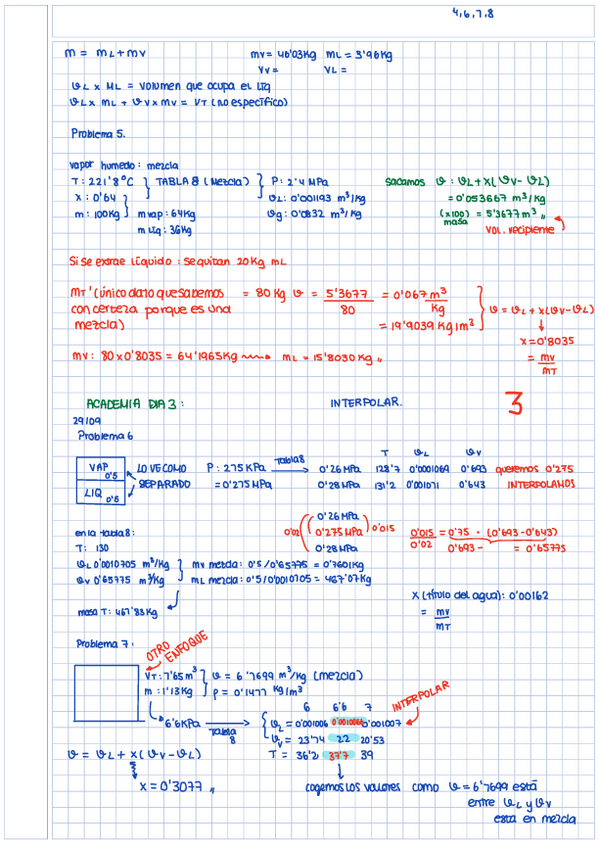 4,6,7,8
m = mL + mv
mv = 46'03 Kg mL = 3'96 Kg
Vv = VL =
υL x ML = volumen que ocupa el LIQ
υL x mL + υv x mv = VT (no específico)
Problema 5.
vapor humedo: mezcla
T: 221'8ºC } TABLA 8 (Mezcla) } P: 2'4 MPa
x: 0'64 υL: 0'001193 m³/kg
m: 100Kg } m vap: 64Kg υg: 0'0832 m³/kg
m LIQ: 36Kg
sacamos υ: υL + x(υv - υL)
= 0'053667 m³/kg
(x100) masa = 5'3677 m³,,
VOL. recipiente
Si se extrae líquido: se quitan 20 Kg mL
MT' (único dato que sabemos = 80 Kg υ = 5'3677 / 80 = 0'067 m³/Kg } υ = υL + x(υv - υL)
con certeza porque es una
mezcla) = 14'9039 Kg/m³
x = 0'8035
= mv/mT
mv: 80 x 0'8035 = 64'1965 Kg → mL = 15'8030 Kg,,
ACADEMIA DIA 3: INTERPOLAR. 3
29/09
Problema 6
T υL υv
VAP 0'5 LO VE COMO P: 275 KPa Tabla 8 → 0'26 MPa 128'7 0'0001069 0'693 queremos 0'275
LIQ 0'5 SEPARADO = 0'275 MPa 0'28 MPa 131'2 0'001071 0'643 INTERPOLAMOS
0'26 MPa
0'02 ( 0'275 MPa ) 0'015
0'28 MPa
0'015 / 0'02 = 0'75 · (0'693-0'643)
0'693- = 0'65775
en la tabla 8:
T: 130
υL 0'0010705 m³/Kg } mv mezcla: 0'5/0'65775 = 0'7601 Kg
υv 0'65775 m³/Kg mL mezcla: 0'5/0'0010705 = 467'07 Kg
masa T: 467'83 Kg
X (título del agua): 0'00162
= mv/MT
Problema 7:
OTRO ENFOQUE
VT: 7'65 m³ } υ = 6'7699 m³/Kg (mezcla)
m: 1'13 Kg ρ = 0'1477 Kg/m³
6 6'6 7 INTERPOLAR
6'6 KPa Tabla 8 → { υL = 0'001006 0'0010066 0'001007
υv = 23'74 22 20'53
T = 36'2 37'7 39
υ = υL + x(υv - υL)
x = 0'3077,,
cogemos los valores como υ = 6'7699 está
entre υL y υv
esta en mezcla